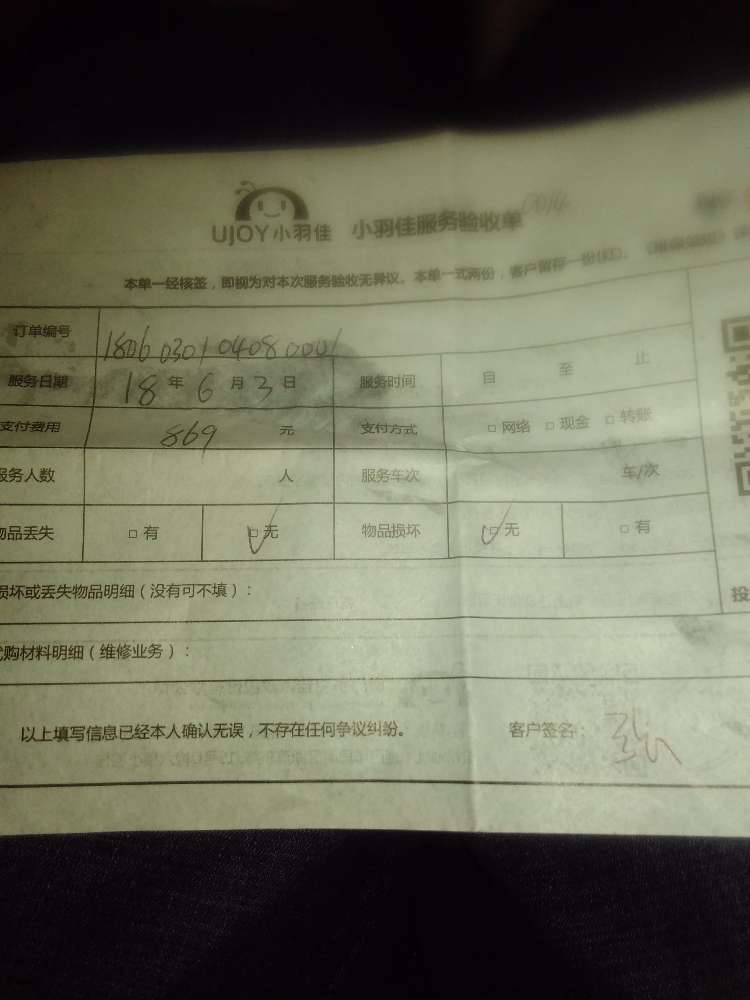 UJOY小羽佳 小羽佳服务验收单
本单一经核签，即视为对本次服务验收无异议。本单一式两份，客户留存一份(红)、
订单编号 1806030104080001
服务日期 18年6月3日 服务时间 自 至 止
支付费用 869 元 支付方式 □网络 □现金 □转账
服务人数 人 服务车次 车/次
物品丢失 □有 □无 物品损坏 □无 □有
损坏或丢失物品明细（没有可不填）：
投
代购材料明细（维修业务）：
以上填写信息已经本人确认无误，不存在任何争议纠纷。 客户签名：